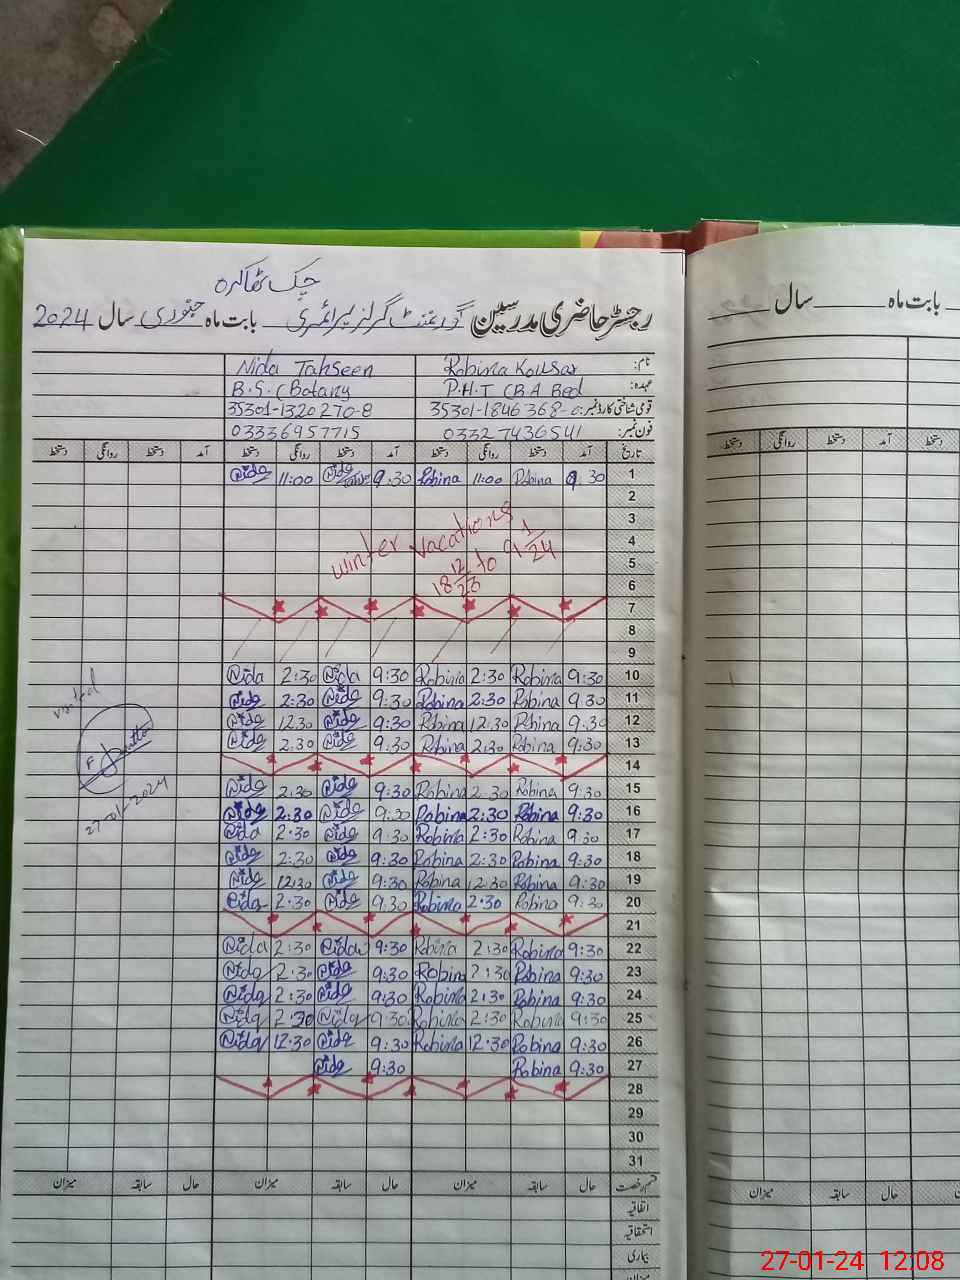 چک ٹھاکرہ
رجسٹر حاضری مدرسین گورنمنٹ گرلز پرائمری بابت ماہ جنوری سال 2024
بابت ماہ سال
نام: Robina Kousar Nida Tahseen
عہدہ: P.H.T (B.A Bed B.S.(Botany
قومی شناختی کارڈ نمبر: 35301-1320270-8
فون نمبر: 03327436541 03336957715
تاریخ آمد دستخط روانگی دستخط آمد دستخط روانگی دستخط آمد دستخط روانگی دستخط
آمد دستخط روانگی دستخط
1 9:30 Robina 11:00 Robina 9:30 Nida 11:00 Nida
2
3
winter vacations
4
18 12/23 to 9 1/24
5
6
7
8
9
10 9:30 Robina 2:30 Robina 9:30 Nida 2:30 Nida
11 9:30 Robina 2:30 Robina 9:30 Nida 2:30 Nida
12 9:30 Robina 12:30 Robina 9:30 Nida 12:30 Nida
13 9:30 Robina 2:30 Robina 9:30 Nida 2:30 Nida
14
15 9:30 Robina 2:30 Robina 9:30 Nida 2:30 Nida
16 9:30 Robina 2:30 Robina 9:30 Nida 2:30 Nida
17 9:30 Robina 2:30 Robina 9:30 Nida 2:30 Nida
18 9:30 Robina 2:30 Robina 9:30 Nida 2:30 Nida
19 9:30 Robina 12:30 Robina 9:30 Nida 12:30 Nida
20 9:30 Robina 2:30 Robina 9:30 Nida 2:30 Nida
21
22 9:30 Robina 2:30 Robina 9:30 Nida 2:30 Nida
23 9:30 Robina 2:30 Robina 9:30 Nida 2:30 Nida
24 9:30 Robina 2:30 Robina 9:30 Nida 2:30 Nida
25 9:30 Robina 2:30 Robina 9:30 Nida 2:30 Nida
26 9:30 Robina 12:30 Robina 9:30 Nida 12:30 Nida
27 9:30 Robina 9:30 Nida
28
29
30
31
visited
27-01-2024
قسم رخصت حال سابقہ میزان حال سابقہ میزان حال سابقہ میزان
حال سابقہ میزان
اتفاقیہ
استحقاقیہ
بیماری
27-01-24 12:08